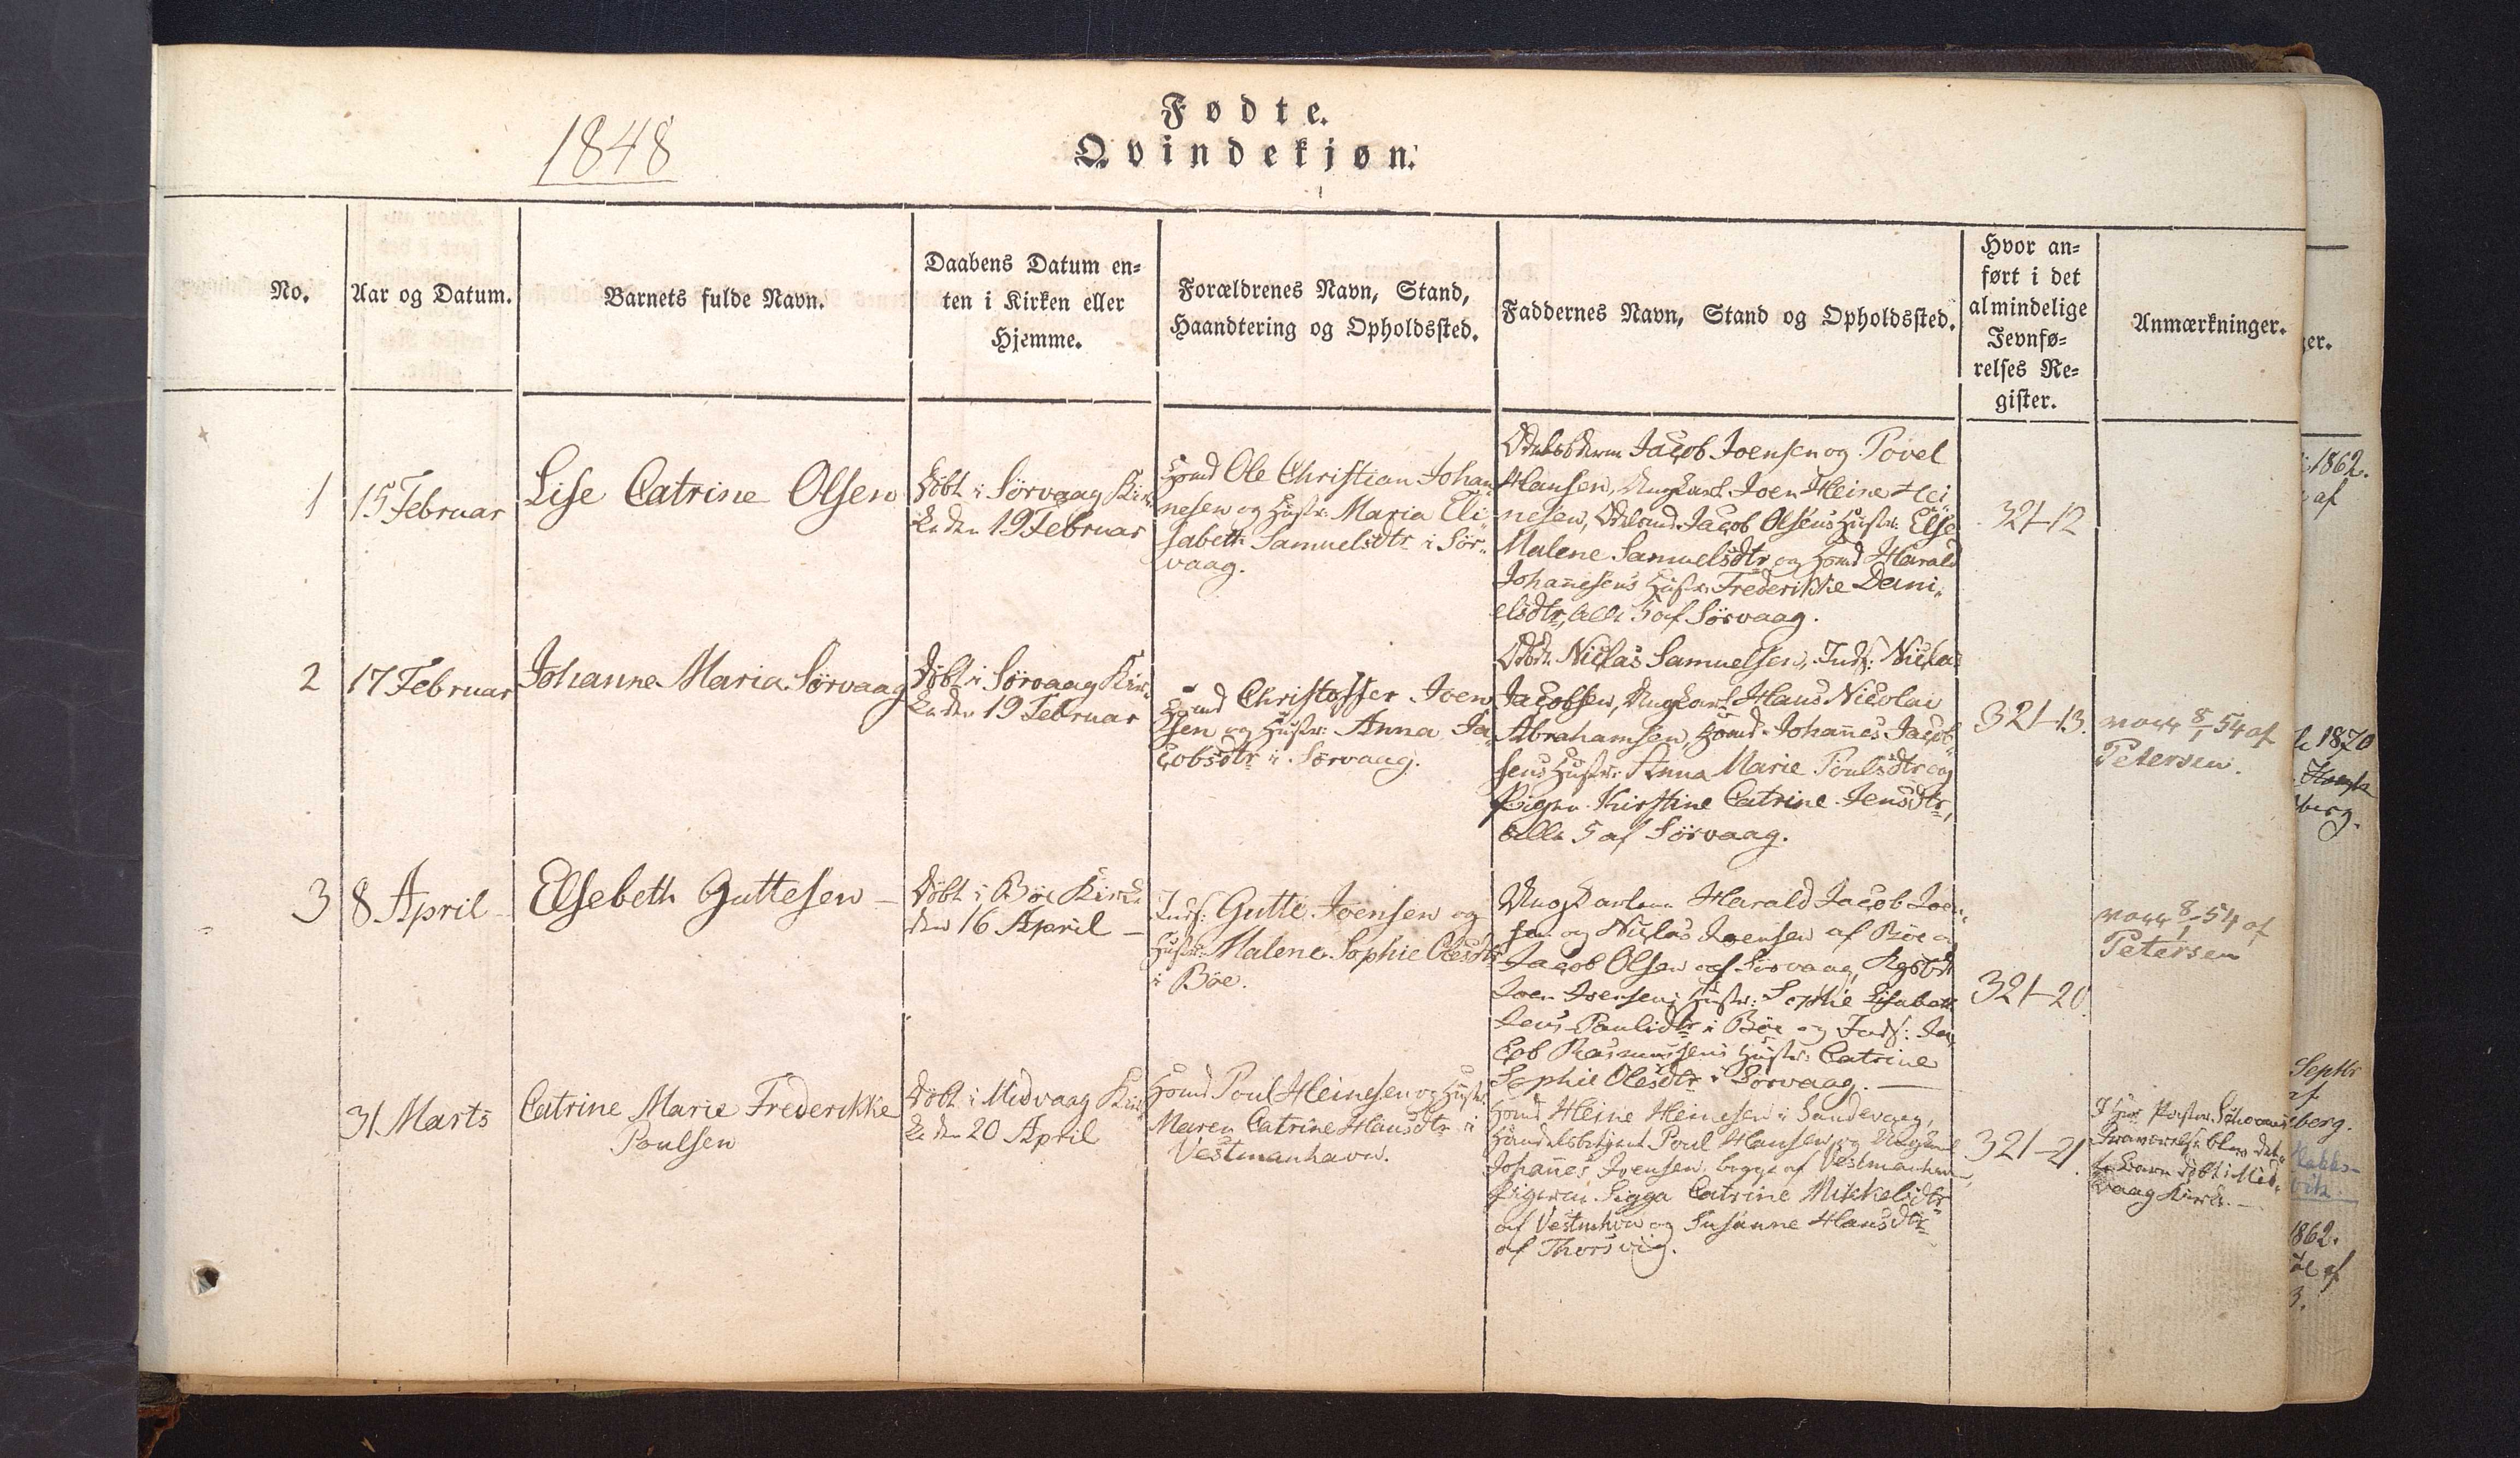 1848
Fødte.
Qvindekjøn.
No.
Aar og Datum.
Barnets fulde Navn.
Daabens Datum en-
ten i Kirken eller
Hjemme.
Forældrenes Navn, Stand,
Haandtering og Opholdssted.
Faddernes Navn, Stand og Opholdssted.
Hvor an-
ført i det
almindelige
Jevnfø-
relses Re-
gister.
Anmærkninger.
1
15 Februar
Lise Catrine Olsen
Döbt i Sörvaag Kir-
ke den 19 Februar
Hmd Ole Christian Johan
nesen og Hustr: Maria Eli-
sabeth Samuelsdtr i Sör-
vaag.
Jacob Joensen og Povel
Hansen, Ungkarl Joen Heine Hei
nesen, Jacob Olsens Hustr: Else
Malene Samuelsdtr og Hmd Harald
Johannesens Hustr: Frederikke Dani-
elsdtr, alle 5 af Sörvaag.
321-12
2
17 Februar
Johanna Maria Sörvaag
Döbt i Sörvaag Kir-
ke den 19 Februar
Hmd Christoffer Joen
sen og Hustr: Anna Ja-
cobsdtr i Sörvaag.
Niclas Samuelsen, Inds: Niclas
Jacobsen, Ungkarl Hans Nicolai
Abrahamsen, Hmd Johannes Jacob-
sens Hustr: Anna Marie Poulsdtr og
Pigen Kirstine Catrine Jensdtr,
alle 5 af Sörvaag.
321-13.
vacc 8/1 54 af
Petersen.
3
8 April
Elsebeth Guttesen
Döbt i Böe Kirke
den 16 April
Inds: Gutte Joensen og
Hustr: Malene Sophie Olesdtr
i Böe.
Ungkarlene Harald Jacob Joen-
sen og Niclas Joensen af Böe og
Jacob Olsen af Sörvaag,
Joen Joensens Hustr: Sophie Lisabeth
Paulidtr i Böe og Inds: Ja-
cob Rasmussens Hustr: Catrine
Sophie Olesdtr i Sörvaag.
321-20.
vacc 8/1 54 af
Petersen
31 Marts
Catrine Marie Frederikke
Poulsen
Döbt i Midvaag Kir-
ke den 20 April
Hmd Poul Heinesen og Hustr:
Maren Catrine Hansdtr i
Vestmanhavn.
Hmd Heine Heinesen i Sandevaag,
Poul Hansen og Ungkarl
Johannes Joensen, begge af Vestmanhavn,
Pigerne Sigga Catrine Mikkelsdtr
af Vestmhvn og Susanne Hansdtr
af Thorsvig.
321-21.
I Hr Pastor
Fraværelse blev det-
te Barn döbt i Mid-
vaag Kirke.
ger.
1862.
af
1870
berg.
Septbr
af
berg.
1862.
af
3.